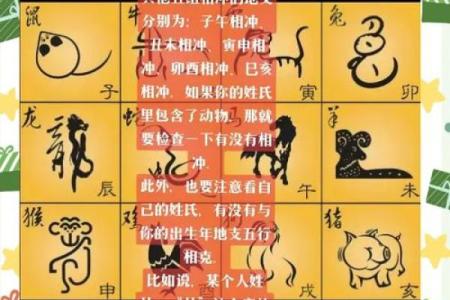 鼠 牛 兔
子 寅 卯
龙 蛇 马 羊
辰 午 未
猴 鸡 猪
申 戌 亥
分别为：子午相冲、
丑未相冲、寅申相
冲、卯酉相冲、巳亥
相冲。如果你的姓氏
里包含了动物，那就
要检查一下有没有相
冲。
此外，也要注意看自
己的姓氏，有没有与
你的出生年地支五行
相克。
比如说，某个人姓